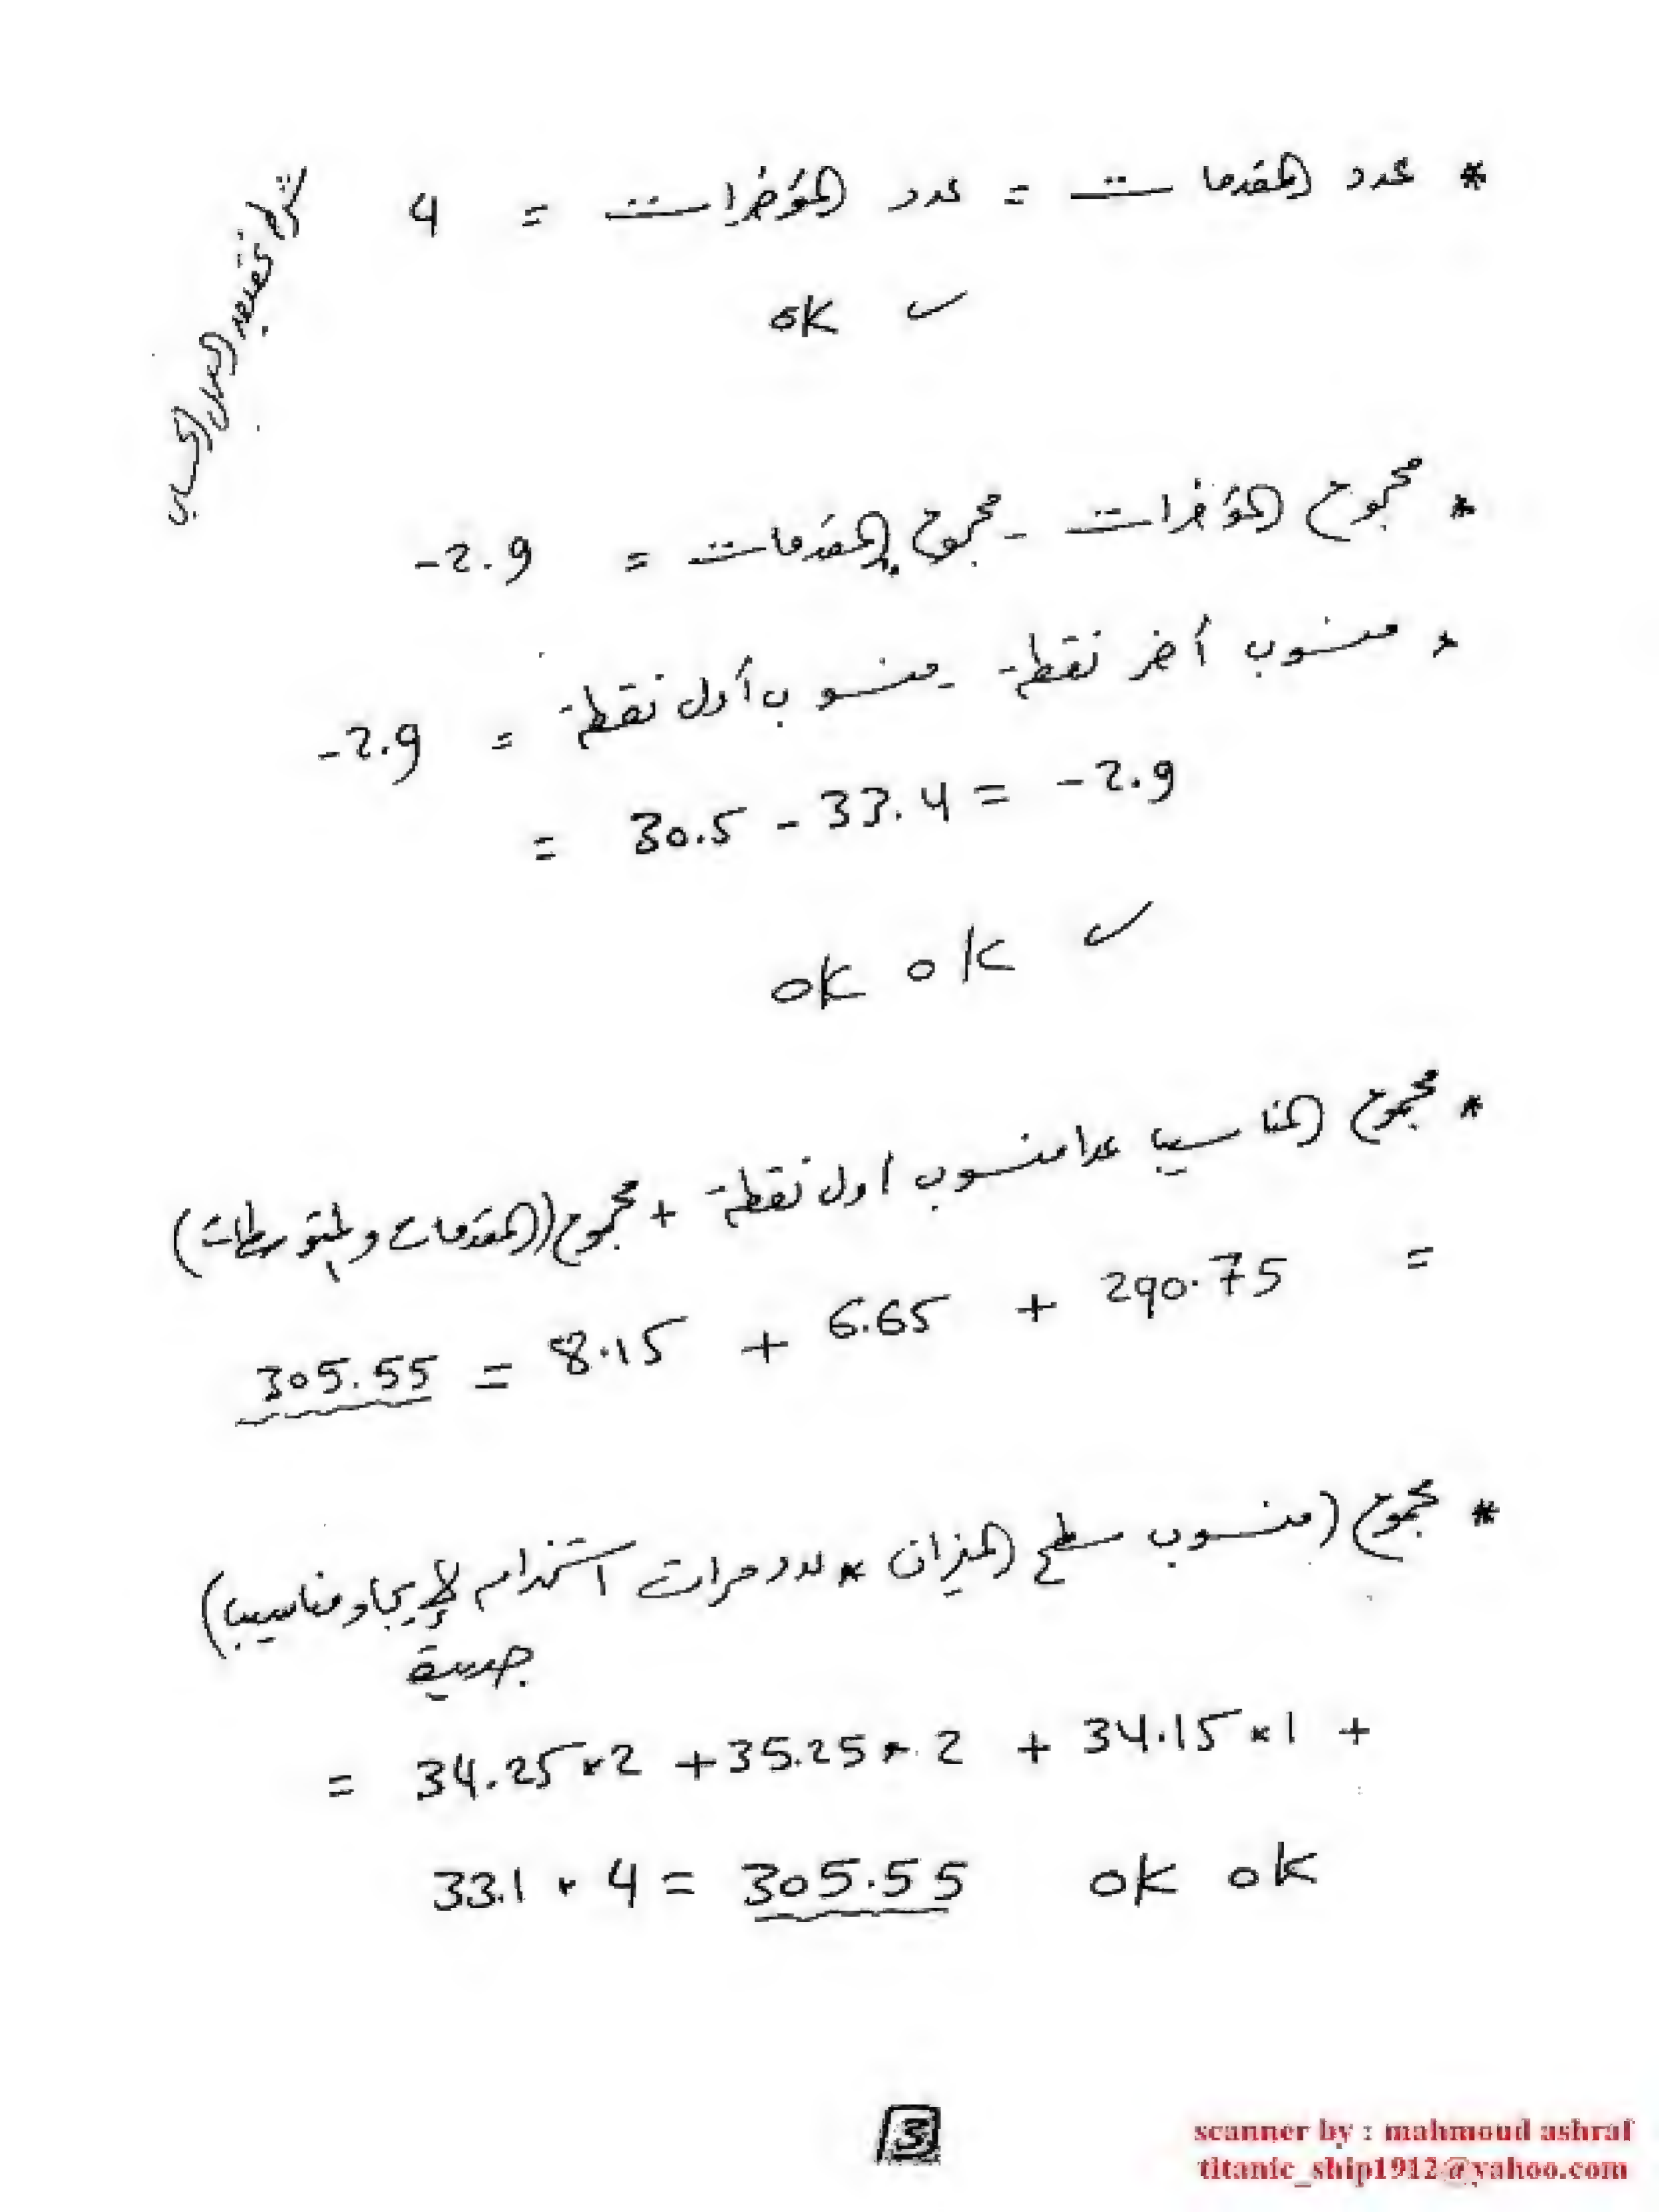 * عدد المقدمات = عدد المؤخرات = 4
ok ✓
* مجموع المؤخرات - مجموع المقدمات = -2.9
* منسوب أخر نقطة - منسوب أول نقطة = -2.9
= 30.5 - 33.4 = -2.9
ok ok ✓
* مجموع المناسيب عدا منسوب اول نقطة + مجموع (المقدمات والمتوسطات)
= 290.75 + 6.65 + 8.15 = 305.55
* مجموع (منسوب سطح الميزان * عدد مرات استخدام لإيجاد مناسيب)
جديدة
= 34.25*2 + 35.25*2 + 34.15*1 +
33.1 * 4 = 305.55 ok ok
3
scanner by : mahmoud ashraf
titanic_ship1912@yahoo.com